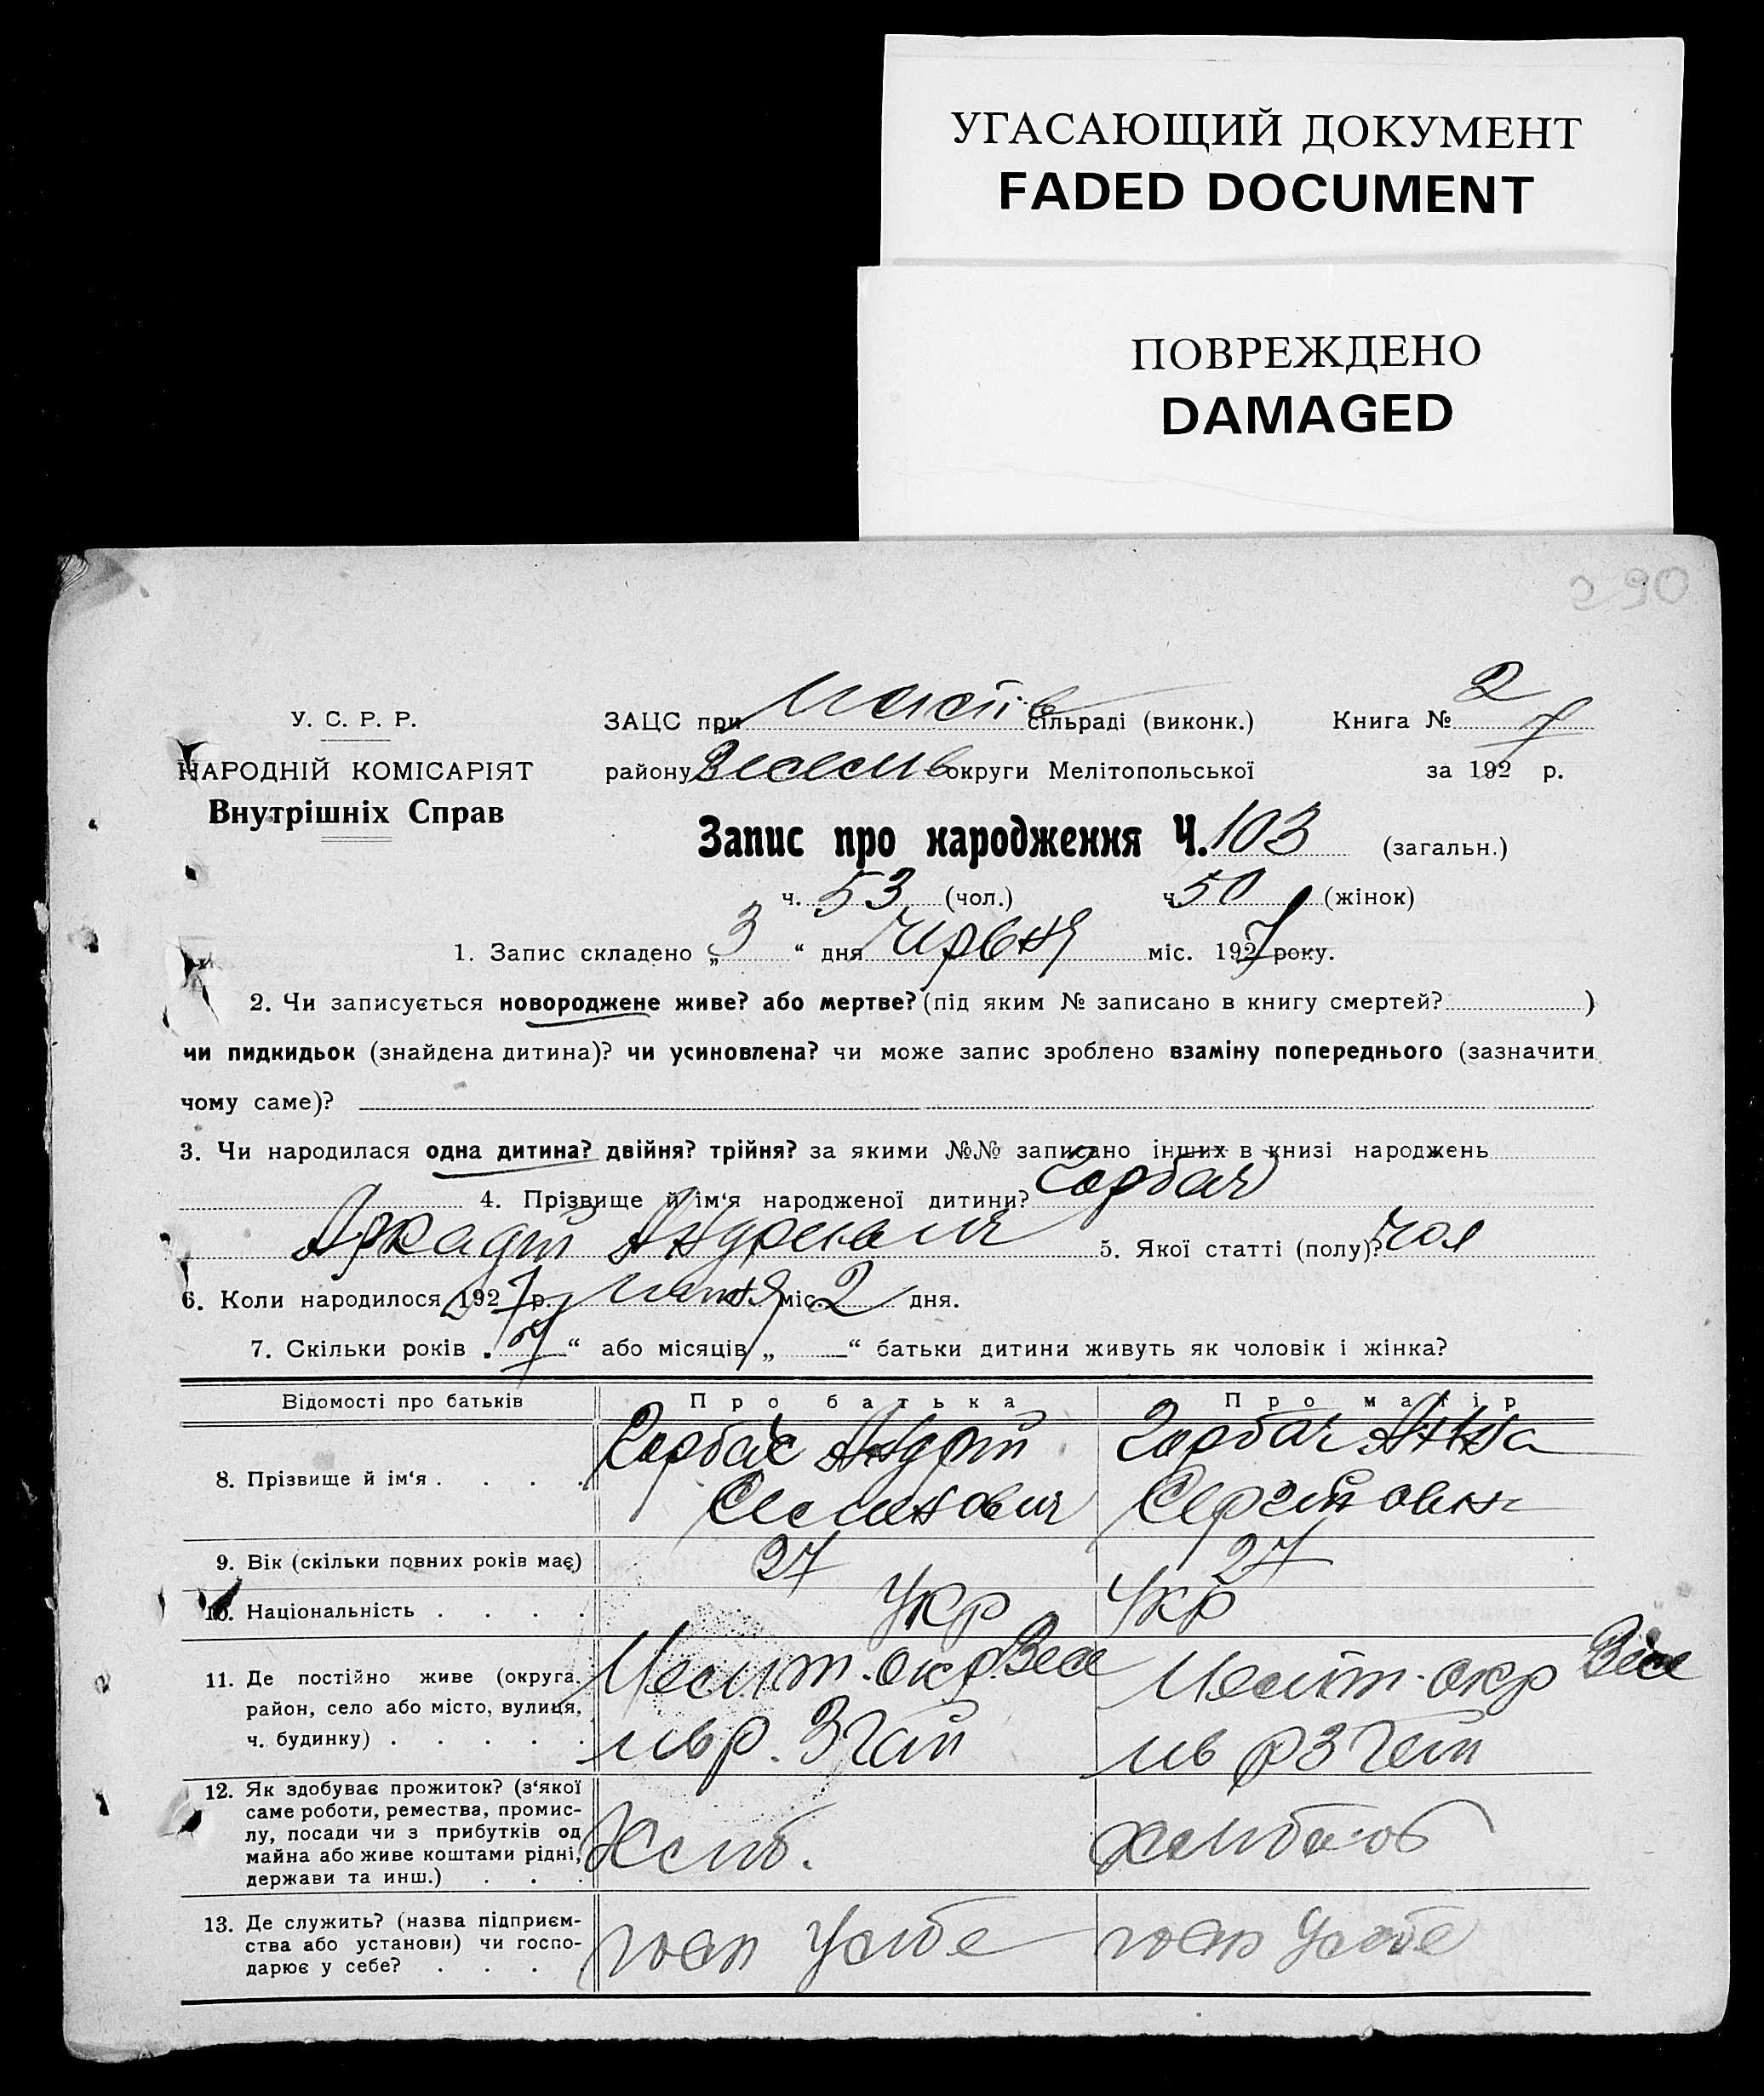 УГАСАЮЩИЙ ДОКУМЕНТ
FADED DOCUMENT
ПОВРЕЖДЕНО
DAMAGED
290
У. С. Р. Р.
НАРОДНІЙ КОМІСАРІЯТ
Внутрішніх Справ
ЗАЦС при сільраді (виконк.) Книга № 2
району Веселив округи Мелітопольської за 1927 р.
Запис про народження Ч. 103 (загальн.)
ч. 53 (чол.) ч. 50 (жінок)
1. Запис складено „ 3 “ дня Чірвня міс. 1927 року.
2. Чи записується новороджене живе? або мертве? (під яким № записано в книгу смертей? )
чи пидкидьок (знайдена дитина)? чи усиновлена? чи може запис зроблено взаміну попереднього (зазначити
чому саме)?
3. Чи народилася одна дитина? двійня? трійня? за якими №№ записано інших в книзі народжень
4. Прізвище й ім‘я народженої дитини? Горбач
Аркадій Андреевич 5. Якої статті (полу)? чол
6. Коли народилося 1927 р. міс. 2 дня.
7. Скільки років „ 7 “ або місяців „ “ батьки дитини живуть як чоловік і жінка?
Відомості про батьків Про батька Про матір
8. Прізвище й ім‘я . . . . Горбач Андрій Горбач Анна
Семенович Сергіивна
9. Вік (скільки повних років має) 27 27
10. Національність . . . . Укр Укр
11. Де постійно живе (округа, Мелит. окр. Весе Меліт. окр Весе
район, село або місто, вулиця,
ч. будинку) . . . . . лів р. Згай лів р Згай
12. Як здобуває прожиток? (з‘якої
саме роботи, ремества, промис-
лу, посади чи з прибутків од
майна або живе коштами рідні, Хліб. Хлібоб
держави та инш.) . . .
13. Де служить? (назва підприєм-
ства або установи) чи госпо- госп Усебе госп Усебе
дарює у себе? . . . .